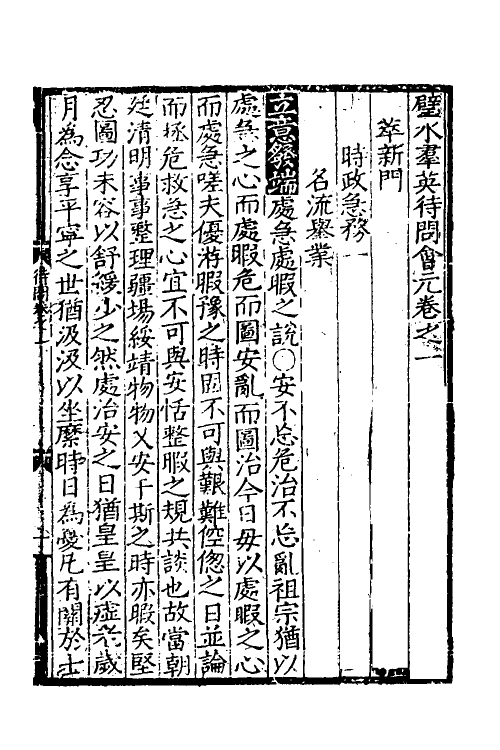 璧水羣英待問會元卷之一
萃新門
時政急務一
名流舉業
立意發端處急處暇之說〇安不忘危治不忘亂祖宗猶以
處急之心而處暇危而圖安亂而圖治今日毋以處暇之心
而處急嗟夫優游暇豫之時固不可與艱難倥傯之日並論
而拯危救急之心宜不可與安恬整暇之規共談也故當朝
廷清明事事整理疆場綏靖物物乂安于斯之時亦暇矣堅
忍圖功未容以舒緩少之然處治安之日猶皇皇以虛老歲
月為念享平寧之世猶汲汲以坐縻時日為憂凡有關於士
待問卷之一